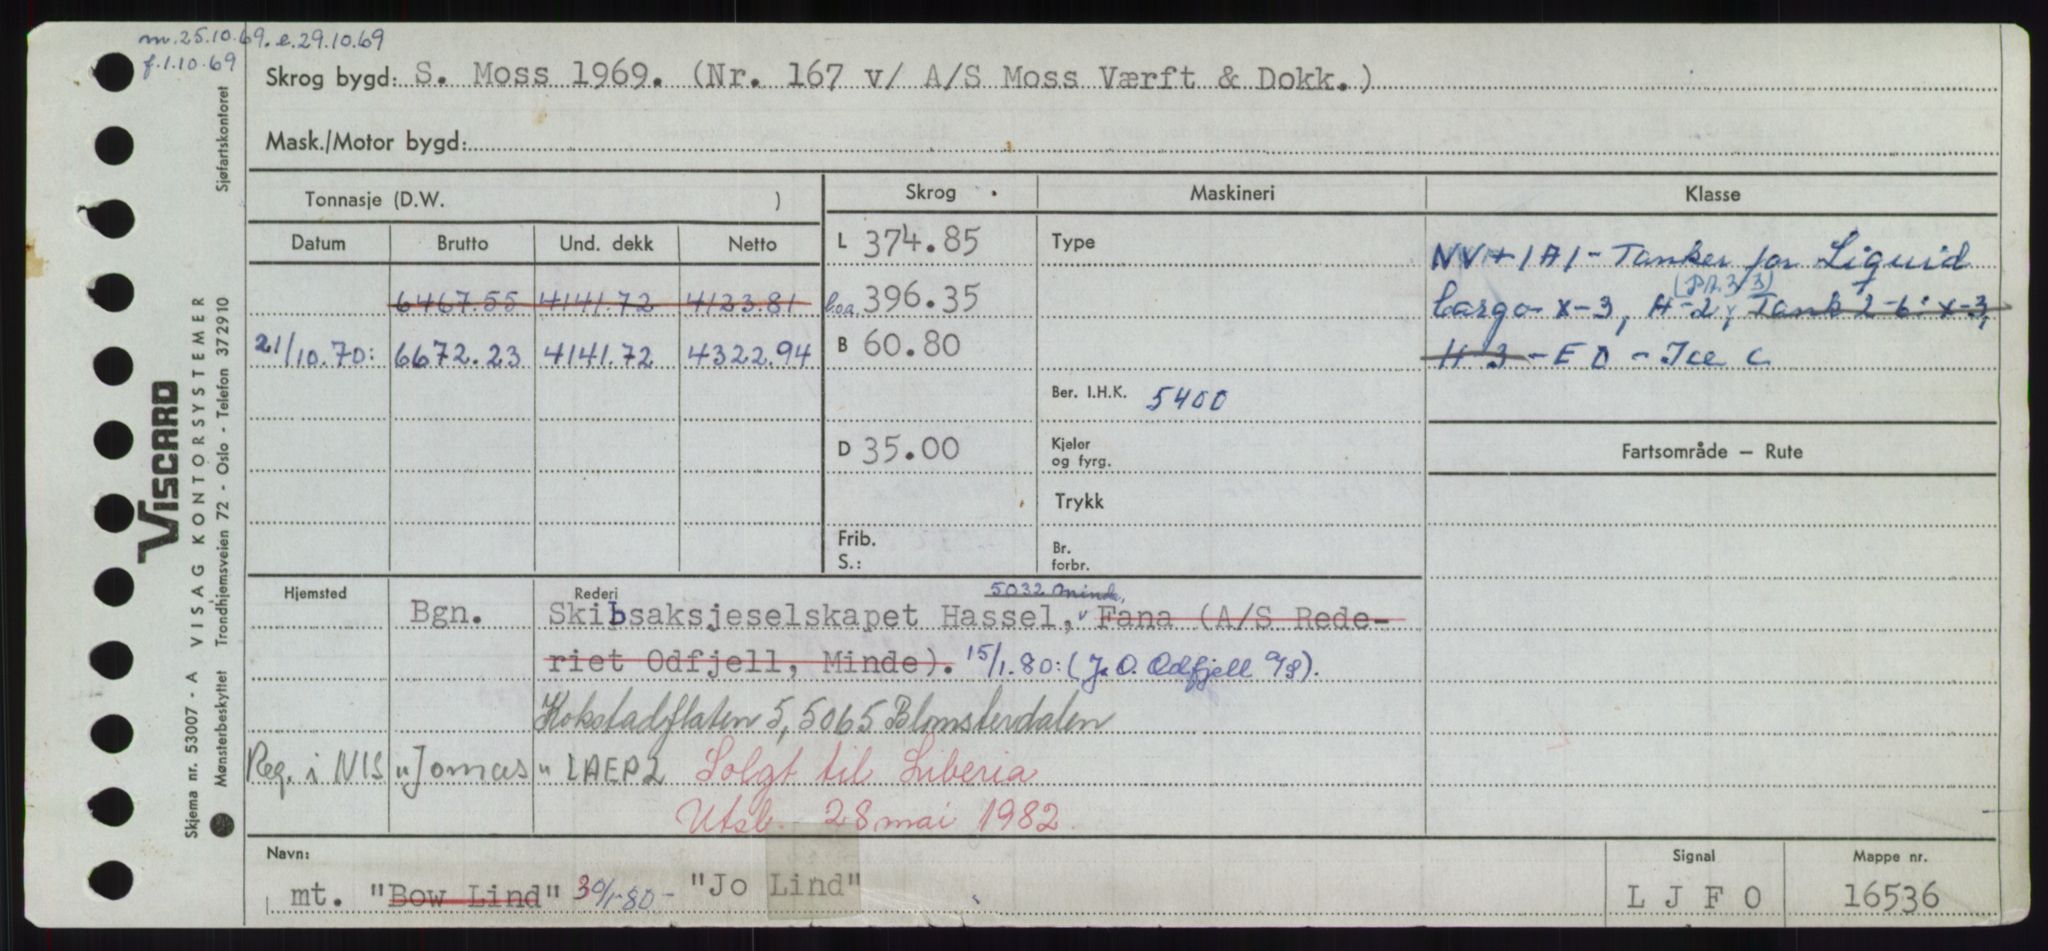 m. 25.10.69. e. 29.10.69
f. 1.10.69
Skrog bygd: S. Moss 1969. (Nr. 167 v/ A/S Moss Værft & Dokk.)
Mask./Motor bygd:
Tonnasje (D.W. )
Skrog
Maskineri
Klasse
Datum Brutto Und. dekk Netto
L 374.85
Type
NV+1A1 - Tanker for Liquid
6467.55 4141.72 4123.81
l.o.a. 396.35
Cargo X-3, H-2, Tank 2-6: X-3,
21/10.70: 6672.23 4141.72 4322.94
B 60.80
H-3 - E0 - Ice C
Ber. I.H.K. 5400
D 35.00
Kjeler
og fyrg.
Fartsområde — Rute
Trykk
Frib.
S.:
Br.
forbr.
Hjemsted
Rederi
5032 Minde,
Bgn. Skibsaksjeselskapet Hassel, Fana (A/S Rede-
riet Odfjell, Minde). 15/1.80: (J. O. Odfjell A/S).
Kokstadflaten 5, 5065 Blomsterdalen
Reg. i NIS "Jomas" LAEP2 Solgt til Liberia
Utsl. 28 mai 1982.
Navn:
Signal
Mappe nr.
mt. "Bow Lind" 30/1-80- "Jo Lind"
L J F O
16536
VISCARD
VISAG KONTORSYSTEMER
Skjema nr. 53007 - A
Sjøfartskontoret
Mønsterbeskyttet Trondhjemsveien 72 - Oslo - Telefon 372910